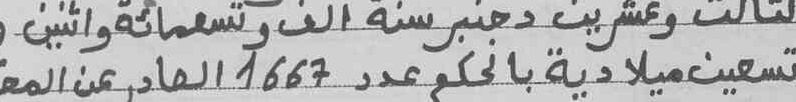 لثالث وعشرين دجنبر سنة الف وتسعمائة واثنين و
تسعين ميلادية بالحكم عدد 1667 الصادر عن المح